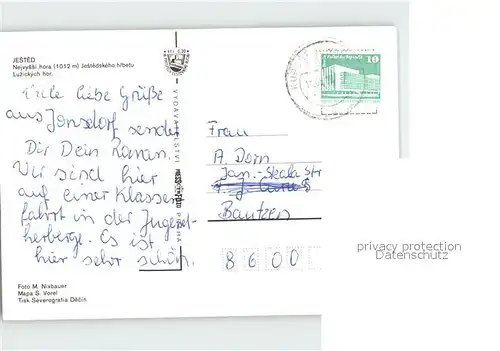 JEŠTĚD
Nejvyšší hora (1012 m) Ještědského hřbetu
Lužických hor.
Viele liebe Grüße
aus Jonsdorf sendet
Dir Dein
Wir sind hier
auf einer Klassen
fahrt in der Jugend-
herberge. Es ist
hier sehr schön.
VYDAVATELSTVÍ
PRAHA
10
Frau
A. Dorn
Jan-Skala Str
Bautzen
8600
Foto M. Nixbauer
Mapa S. Vorel
Tisk Severografia Děčín
privacy protection
Datenschutz